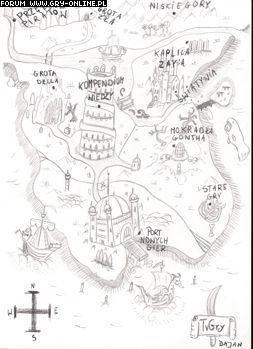 FORUM WWW.GRY-ONLINE.PL
NISKIE GÓRY
GROTA
KAPLICA
ZAYA
ŚWIĄTYNIA
GROTA
DELLA
KOMPENDIUM
WIEDZY
MOKRADŁA
GONTHA
STARE
GRY
PORT
NOWYCH
GIER
N
W E
S
TVGRY
DAJAN